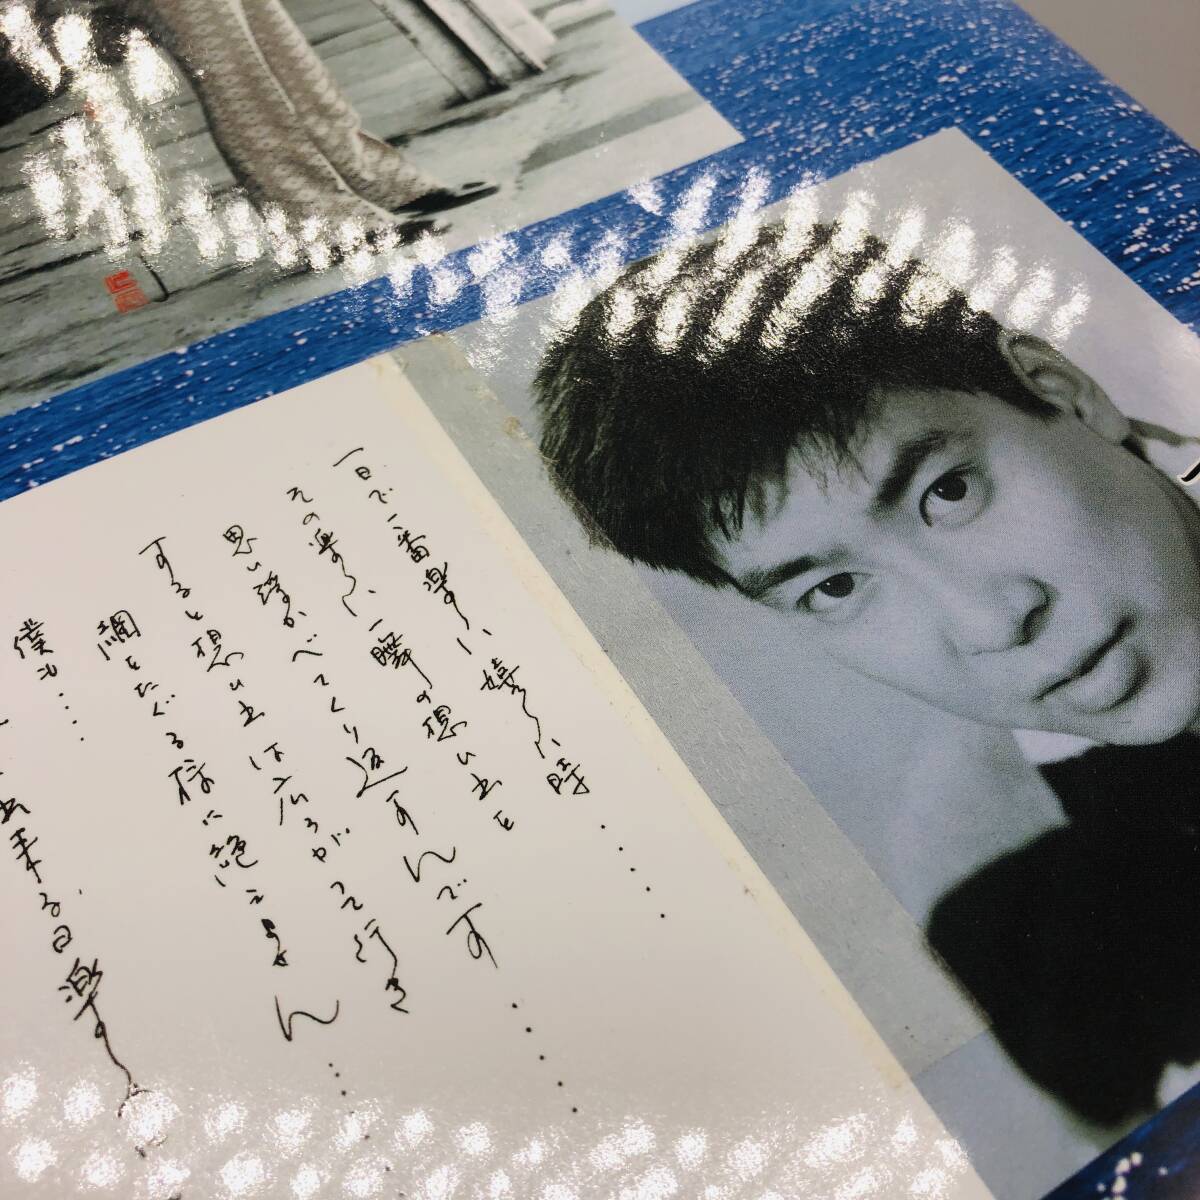 一日で一番楽しい嬉しい時・・・・
その楽しい一瞬の想い出を
思い浮かべてくり返すんです・・・・
すると想い出は広がって行き
綱をたぐる様に絶えません・・・・
僕も・・・・
出来る日楽し